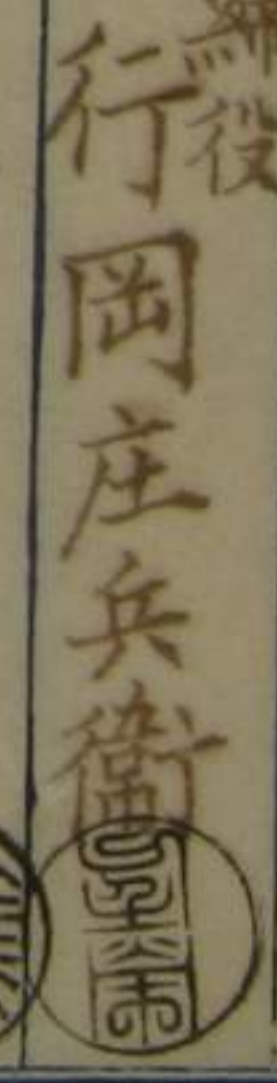 締役
行岡庄兵衛